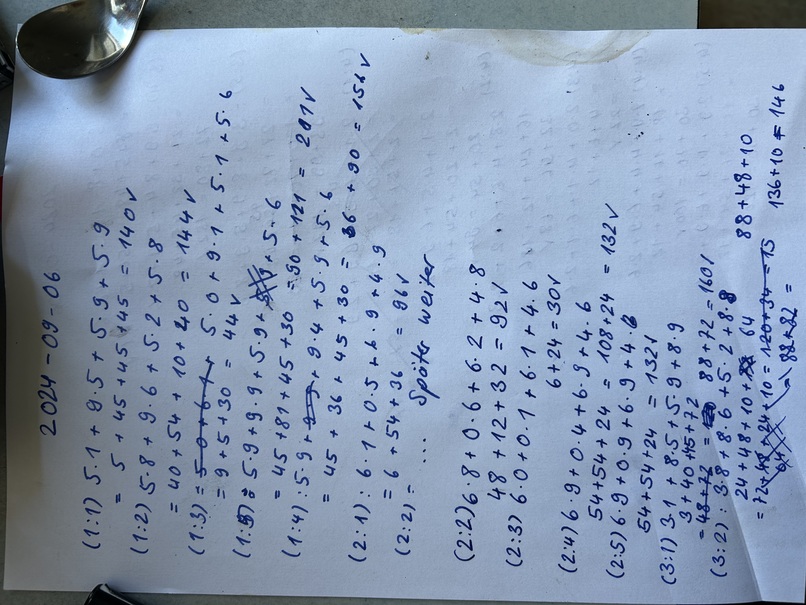 2024-09-06
(1:1) 5·1 + 9·5 + 5·9 + 5·9
= 5 + 45 + 45 + 45 = 140✓
(1:2) 5·8 + 9·6 + 5·2 + 5·8
= 40 + 54 + 10 + 40 = 144✓
(1:3) = 5·0 + 6·1 + 5·0 + 9·1 + 5·1 + 5·6
= 9 + 5 + 30 = 44✓
(1:5) = 5·9 + 9·9 + 5·9 + 5·9 + 5·6
= 45 + 81 + 45 + 30 = 90 + 121 = 201✓
(1:4) : 5·9 + 9·9 + 9·4 + 5·9 + 5·6
= 45 + 36 + 45 + 30 = 66 + 90 = 156✓
(2:1) : 6·1 + 0·5 + 6·9 + 4·9
= 6 + 54 + 36 = 96✓
(2:2) = ... Später weiter
(2:2) 6·8 + 0·6 + 6·2 + 4·8
48 + 12 + 32 = 92✓
(2:3) 6·0 + 0·1 + 6·1 + 4·6
6 + 24 = 30✓
(2:4) 6·9 + 0·4 + 6·9 + 4·6
54 + 54 + 24 = 108 + 24 = 132✓
(2:5) 6·9 + 0·9 + 6·9 + 4·6
54 + 54 + 24 = 132✓
(3:1) 3·1 + 8·5 + 5·9 + 8·9
3 + 40 + 45 + 72
= 48 + 72 = 88 + 72 = 160✓
(3:2) : 3·8 + 8·6 + 5·2 + 8·8
24 + 48 + 10 + 64 88 + 48 + 10
= 72 + 48 + 24 + 10 = 120 + 34 = 15 136 + 10 = 146
64 = 88 + 82 =